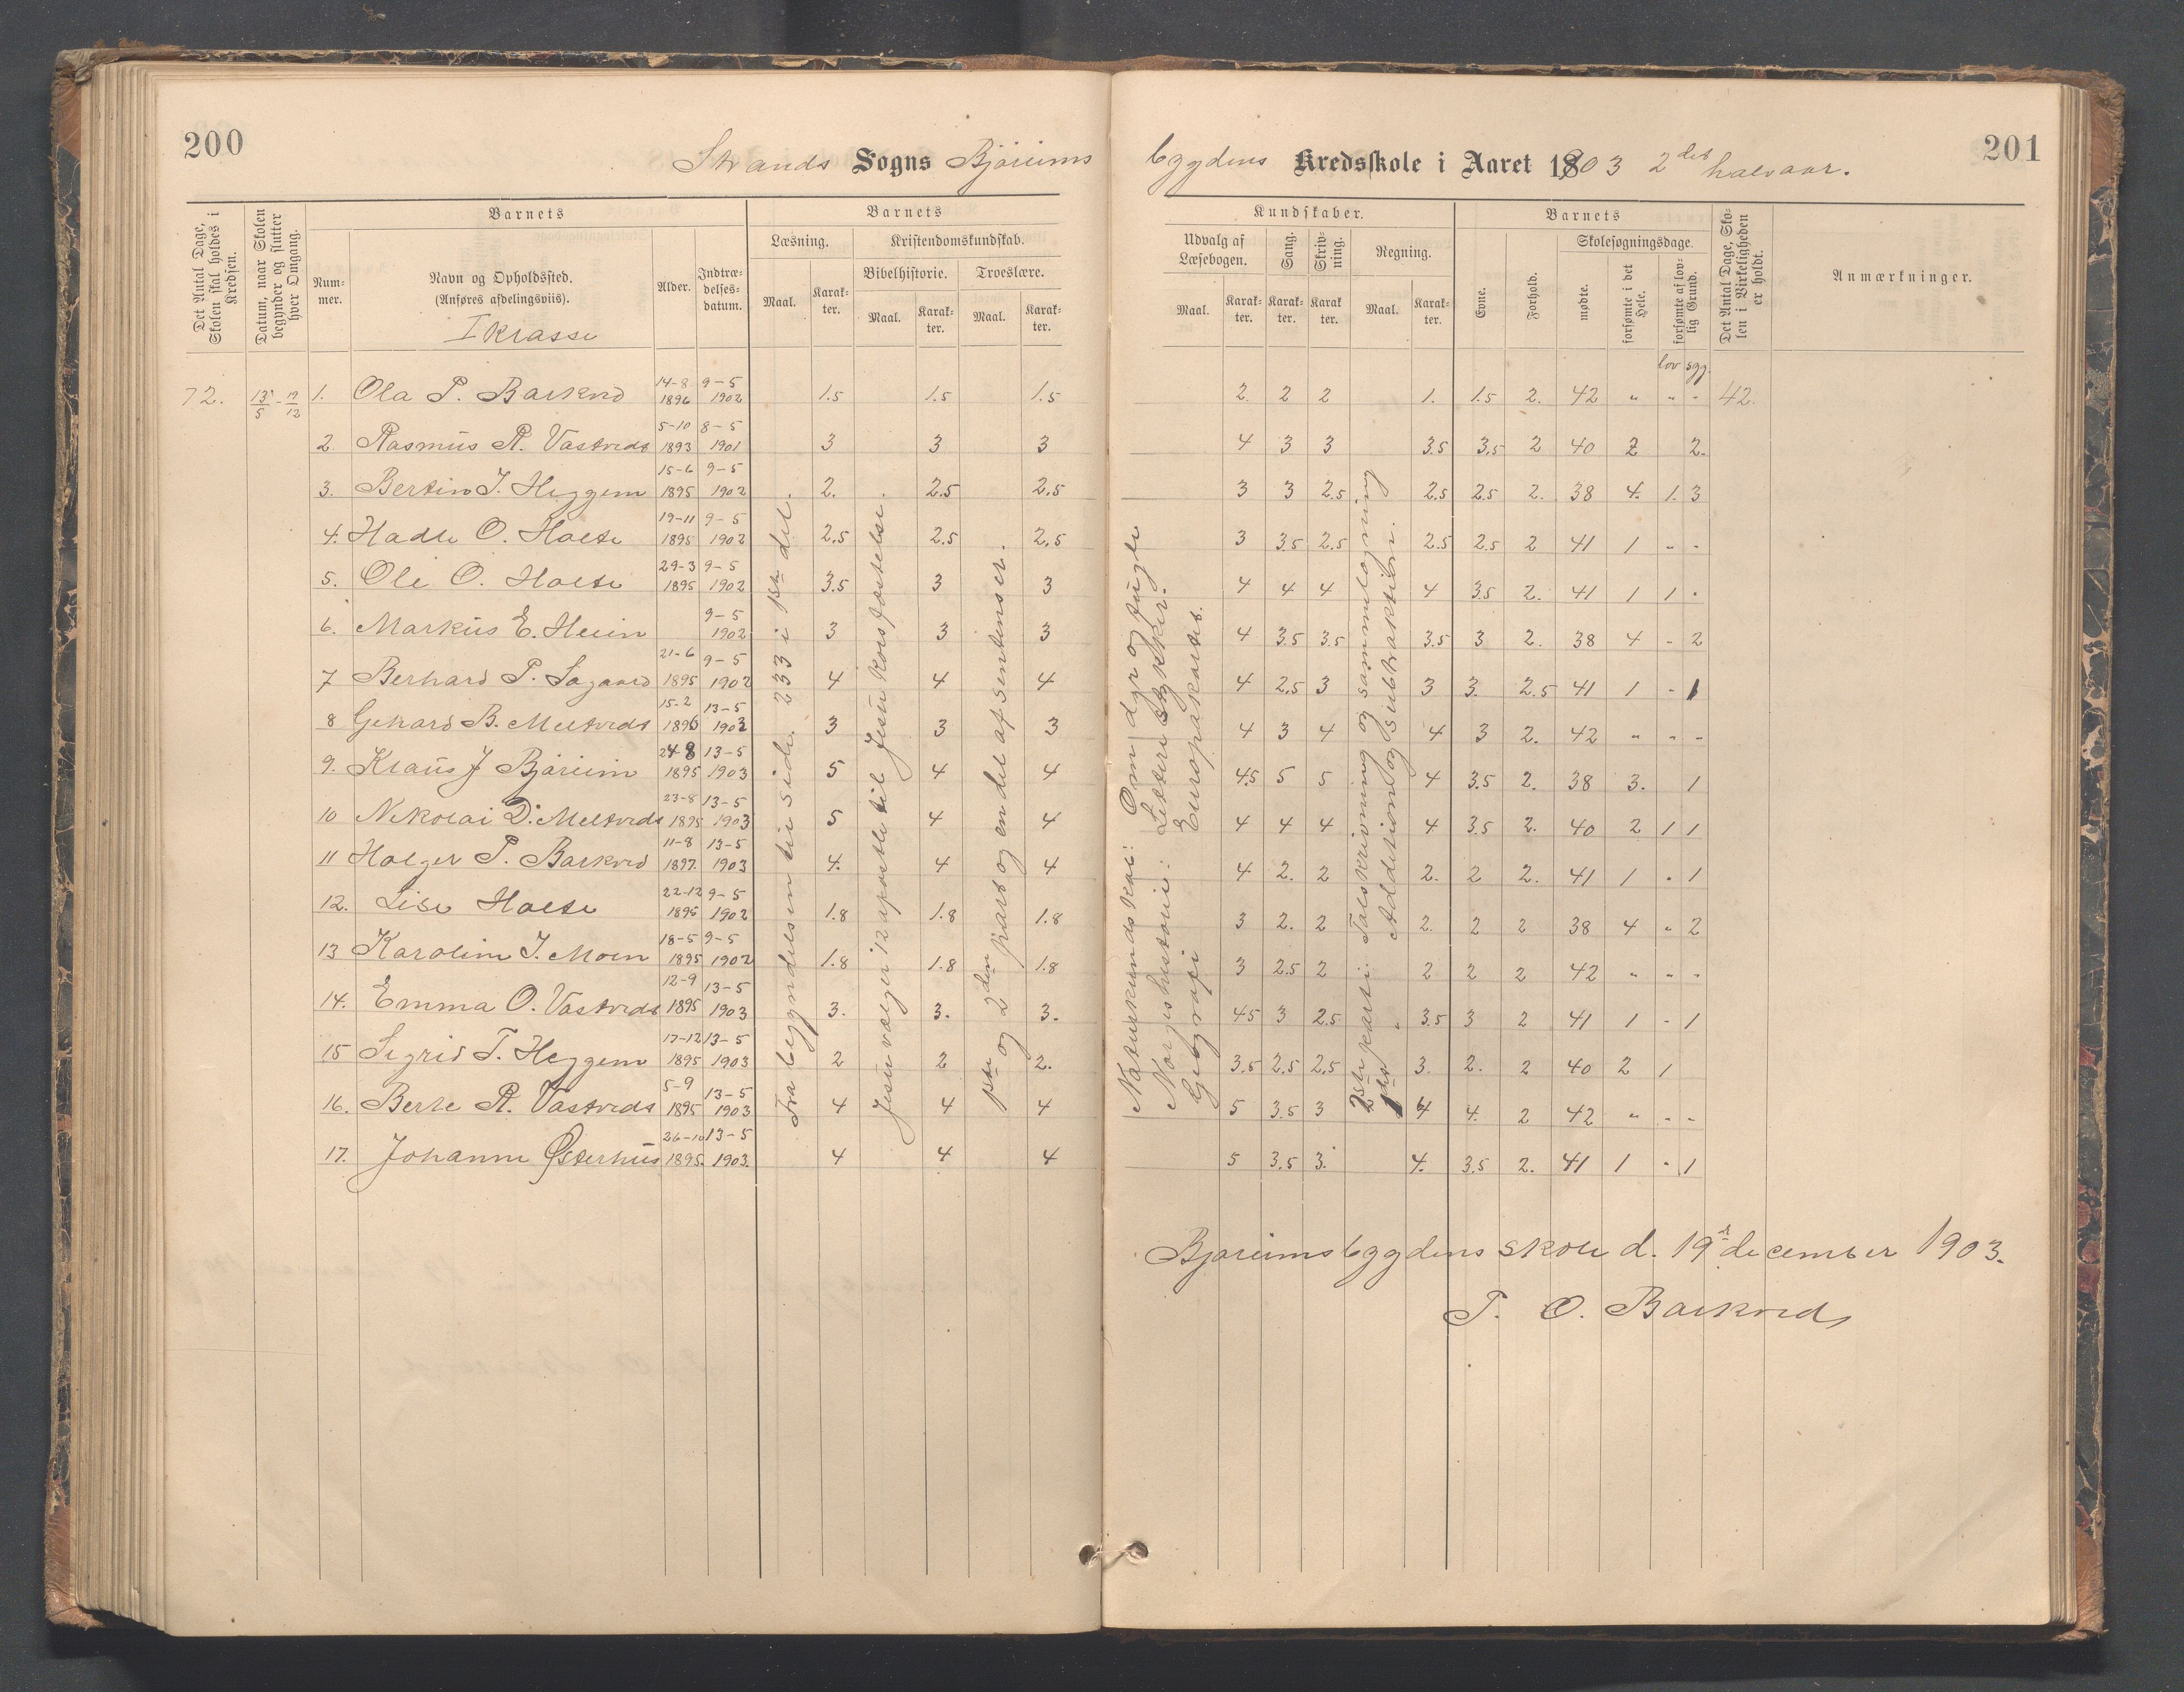 200
Strands Sogns Björeims
Det Antal Dage, Skolen skal holdes i Kredsen.
Datum, naar Skolen begynder og slutter hver Omgang.
Barnets
Nummer.
Navn og Opholdssted.
(Anføres afdelingsviis).
I Klasse
Alder.
Indtrædelsesdatum.
Barnets
Læsning.
Kristendomskundskab.
Bibelhistorie.
Troeslære.
Maal.
Karakter.
Maal.
Karakter.
Maal.
Karakter.
72. 13/5 - 19/12 1. Ola P. Barkvd 14-8 1896 9-5 1902 1.5 1.5 1.5
2. Rasmus R. Vastveds 5-10 1893 8-5 1901 3 3 3
3. Bertin J. Heggem 15-6 1895 9-5 1902 2. 2.5 2.5
4. Hadle O. Holte 19-11 1895 9-5 1902 2.5 2.5 2.5
5. Ole O. Holte 29-3 1895 9-5 1902 3.5 3 3
6. Markus E. 9-5 1902 3 3 3
7 Berhard P. 21-6 1895 9-5 1902 4 4 4
8 Gehard B. Meltveds 15-2 1896 13-5 1903 3 3 3
9. Klaus J Björeim 24-8 1895 13-5 1903 5 4 4
10 Nikolai D. Meltveds 23-8 1895 13-5 1903 5 4 4
11 Holger P. Barkved 11-8 1897. 13-5 1903 4. 4 4
12. Lise Holte 22-12 1895 9-5 1902 1.8 1.8 1.8
13 Karoline J. Moen 18-5 1895 9-5 1902 1.8 1.8 1.8
14. Emma O. Vastveds 12-9 1895 13-5 1903 3. 3. 3.
15 Sigrid T. Heggem 17-12 1895 13-5 1903 2 2 2.
16. Berte R. Vastveds 5-9 1895 13-5 1903 4 4 4
17. Johanne Østerhus 26-10 1895. 13-5 1903. 4 4 4
Fra begyndelsen til side 233 i 1ste del.
Jesu vælger 12 apostle til Jesu korsfæstelse.
1ste og 2den part og en del af sentenser.
201
bygdens Kredsskole i Aaret 1903 2det halvaar.
Kundskaber.
Udvalg af Læsebogen.
Sang.
Skrivning.
Regning.
Maal.
Karakter.
Karakter.
Karakter.
Maal.
Karakter.
Barnets
Evne.
Forhold.
Skolesøgningsdage.
mødte.
forsømte i det Hele.
forsømte af lovlig Grund.
lov syg.
Det Antal Dage, Skolen i Virkeligheden er holdt.
Anmærkninger.
2. 2 2 1. 1.5 2. 42 " " - 42.
4 3 3 3.5 3.5 2 40 2 2.
3 3 2.5 2.5 2.5 2. 38 4. 1. 3
3 3.5 2.5 2.5 2.5 2 41 1 - -
4 4 4 4 3.5 2. 41 1 1 .
4 3.5 3.5 3.5 3 2. 38 4 - 2
4 2.5 3 3 3. 2.5 41 1 - 1
4 3 4 4 3 2. 42 " - -
4.5 5 5 4 3.5 2. 38 3. 1
4 4 4 4 3.5 2. 40 2 1 1
4 2. 2 2. 2 2. 41 1 . 1
3 2. 2 2. 2 2 38 4 " 2
3 2.5 2 2 2 2 42 " - -
4.5 3 2.5 3.5 3 2 41 1 - 1
3.5 2.5 2.5 3. 2. 2 40 2 1
5 3.5 3 4 4. 2 42 " - -
5 3.5 3. 4. 3.5 2. 41 1 - 1
Naturkundskab: Om dyr og fugle
Norgeshistorie: Lettere stykker.
Geografi Europakartet.
2den parti: Talskrivning og sammenlægning
1ste " Addition og Subtraktion.
Björeimsbygdens skole d. 19de december 1903.
P. O. Barkveds